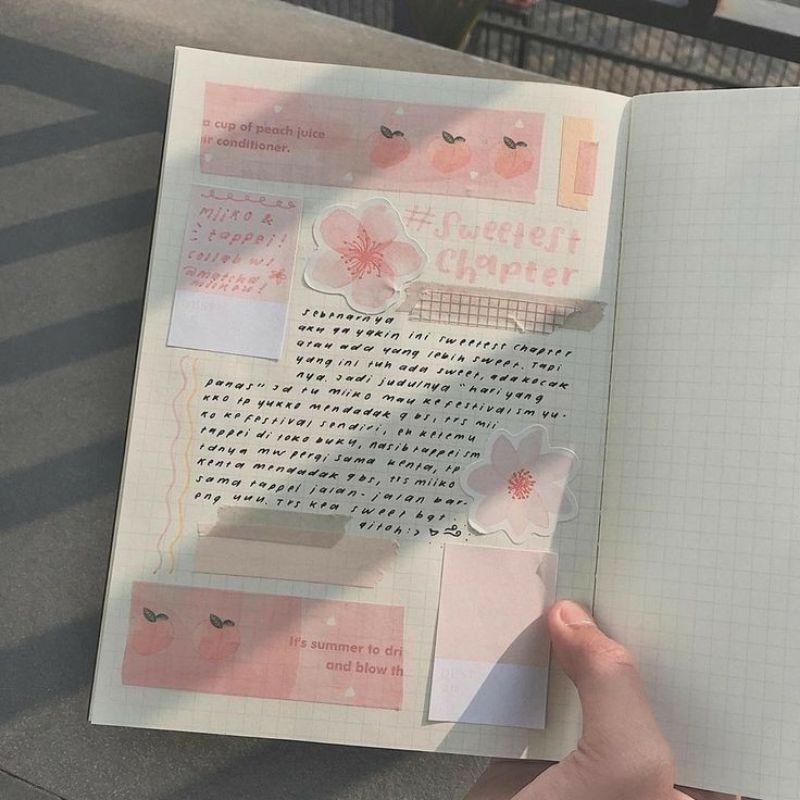 a cup of peach juice
ir conditioner.
miiko &
tappei!
collab w/
@matcha
miikou!
#Sweetest
Chapter
sebenarnya
aku ga yakin ini sweetest chapter
atau ada yang lebih sweet. Tapi
yang ini tuh ada sweet, ada kocak
nya. Jadi judulnya "hari yang
panas" Jd tu miiko mau ke festival sm yu-
kko tp yukko mendadak g bs, trs mii
ko ke festival sendiri, eh ketemu
tappei di toko buku, nasib tappei sm
tanya mw pergi sama kenta, tp
kenta mendadak g bs, trs miiko
sama tappei jalan-jalan bar-
eng uuu. Trs kea sweet bgt
gitoh:>
It's summer to dri
and blow th